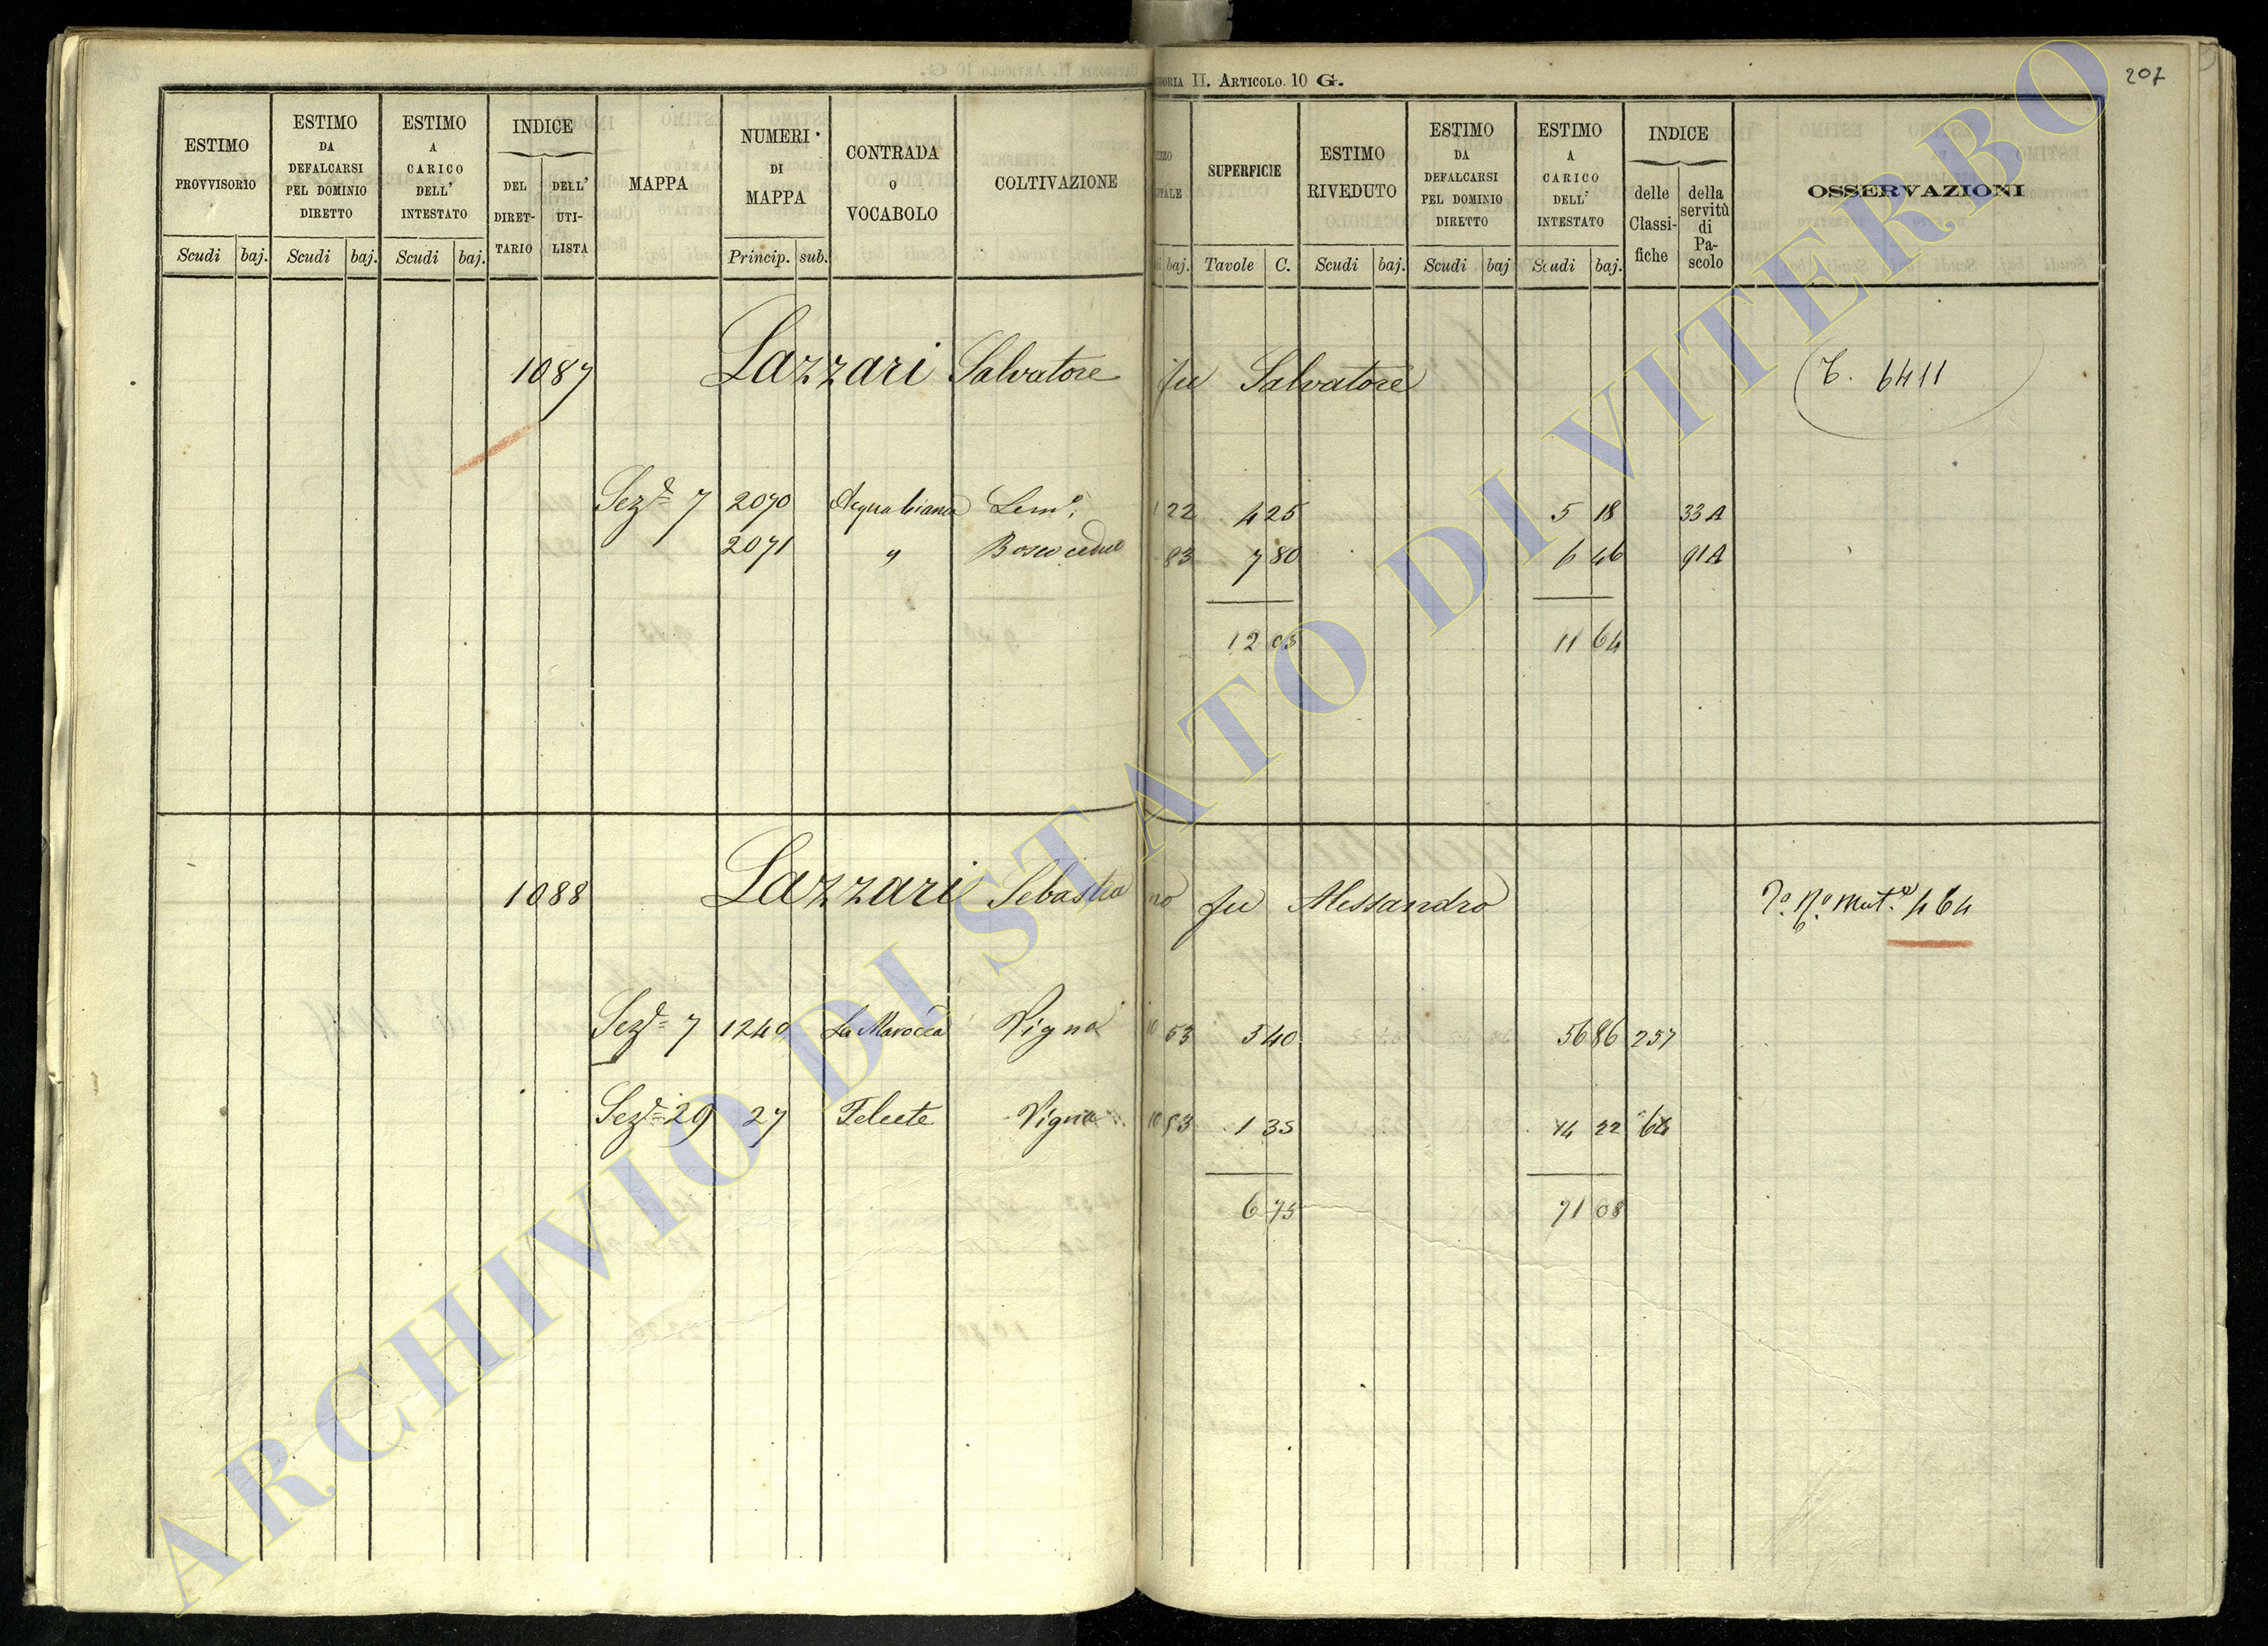 CATEGORIA II. ARTICOLO. 10 G.
207
ESTIMO PROVVISORIO Scudi baj.
ESTIMO DA DEFALCARSI PEL DOMINIO DIRETTO Scudi baj.
ESTIMO A CARICO DELL' INTESTATO Scudi baj.
INDICE DEL DIRET-TARIO DELL' UTI-LISTA
MAPPA
NUMERI DI MAPPA Princip. sub.
CONTRADA O VOCABOLO
COLTIVAZIONE
baj.
SUPERFICIE Tavole C.
ESTIMO RIVEDUTO Scudi baj.
ESTIMO DA DEFALCARSI PEL DOMINIO DIRETTO Scudi baj
ESTIMO A CARICO DELL' INTESTATO Scudi baj.
INDICE delle Classi-fiche della servitù di Pa-scolo
OSSERVAZIONI
1087 Lazzari Salvatore fu Salvatore 6411
Seze 7 2070 Acquabianca Sem. 1 22 4 25 5 18 33 A
2071 " Bosco ceduo 83 7 80 6 46 91 A
12 05 11 64
1088 Lazzari Sebastiano fu Alessandro Mut. 464
Seze 7 1240 La Marocca Vigna 10 53 5 40 56 86 257
Seze 29 27 Felcete Vigna 10 53 1 35 14 22 64
6 75 71 08
ARCHIVIO DI STATO DI VITERBO